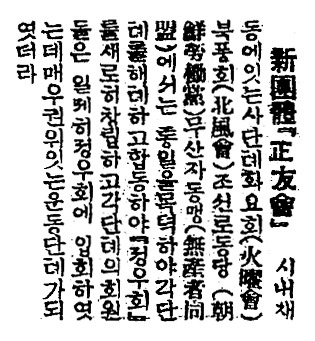 新團體『正友會』
시내재
동에잇는사단데화요회(火曜會)
북풍회(北風會)조선로동당(朝
鮮勞働黨)무산자동맹(無産者同
盟)에서는 통일을목뎍하야각단
데를해데하고합동하야『정우회』
를새로히창립하고각단데의회원
들은 일톄히정우회에 입회하엿
는데매우권위잇는운동단데가되
엿더라